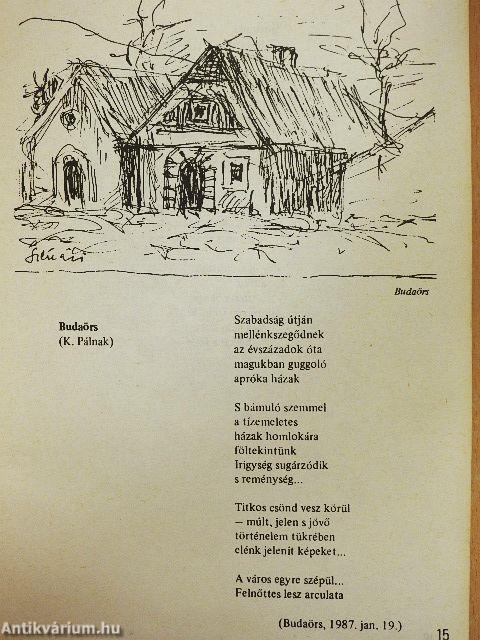 Budaörs
Budaörs
(K. Pálnak)
Szabadság útján
mellénkszegődnek
az évszázadok óta
magukban guggoló
apróka házak
S bámuló szemmel
a tízemeletes
házak homlokára
föltekintünk
Irigység sugárzódik
s reménység...
Titkos csönd vesz körül
— múlt, jelen s jövő
történelem tükrében
elénk jelenít képeket...
A város egyre szépül...
Felnőttes lesz arculata
(Budaörs, 1987. jan. 19.)
15
Antikvárium.hu